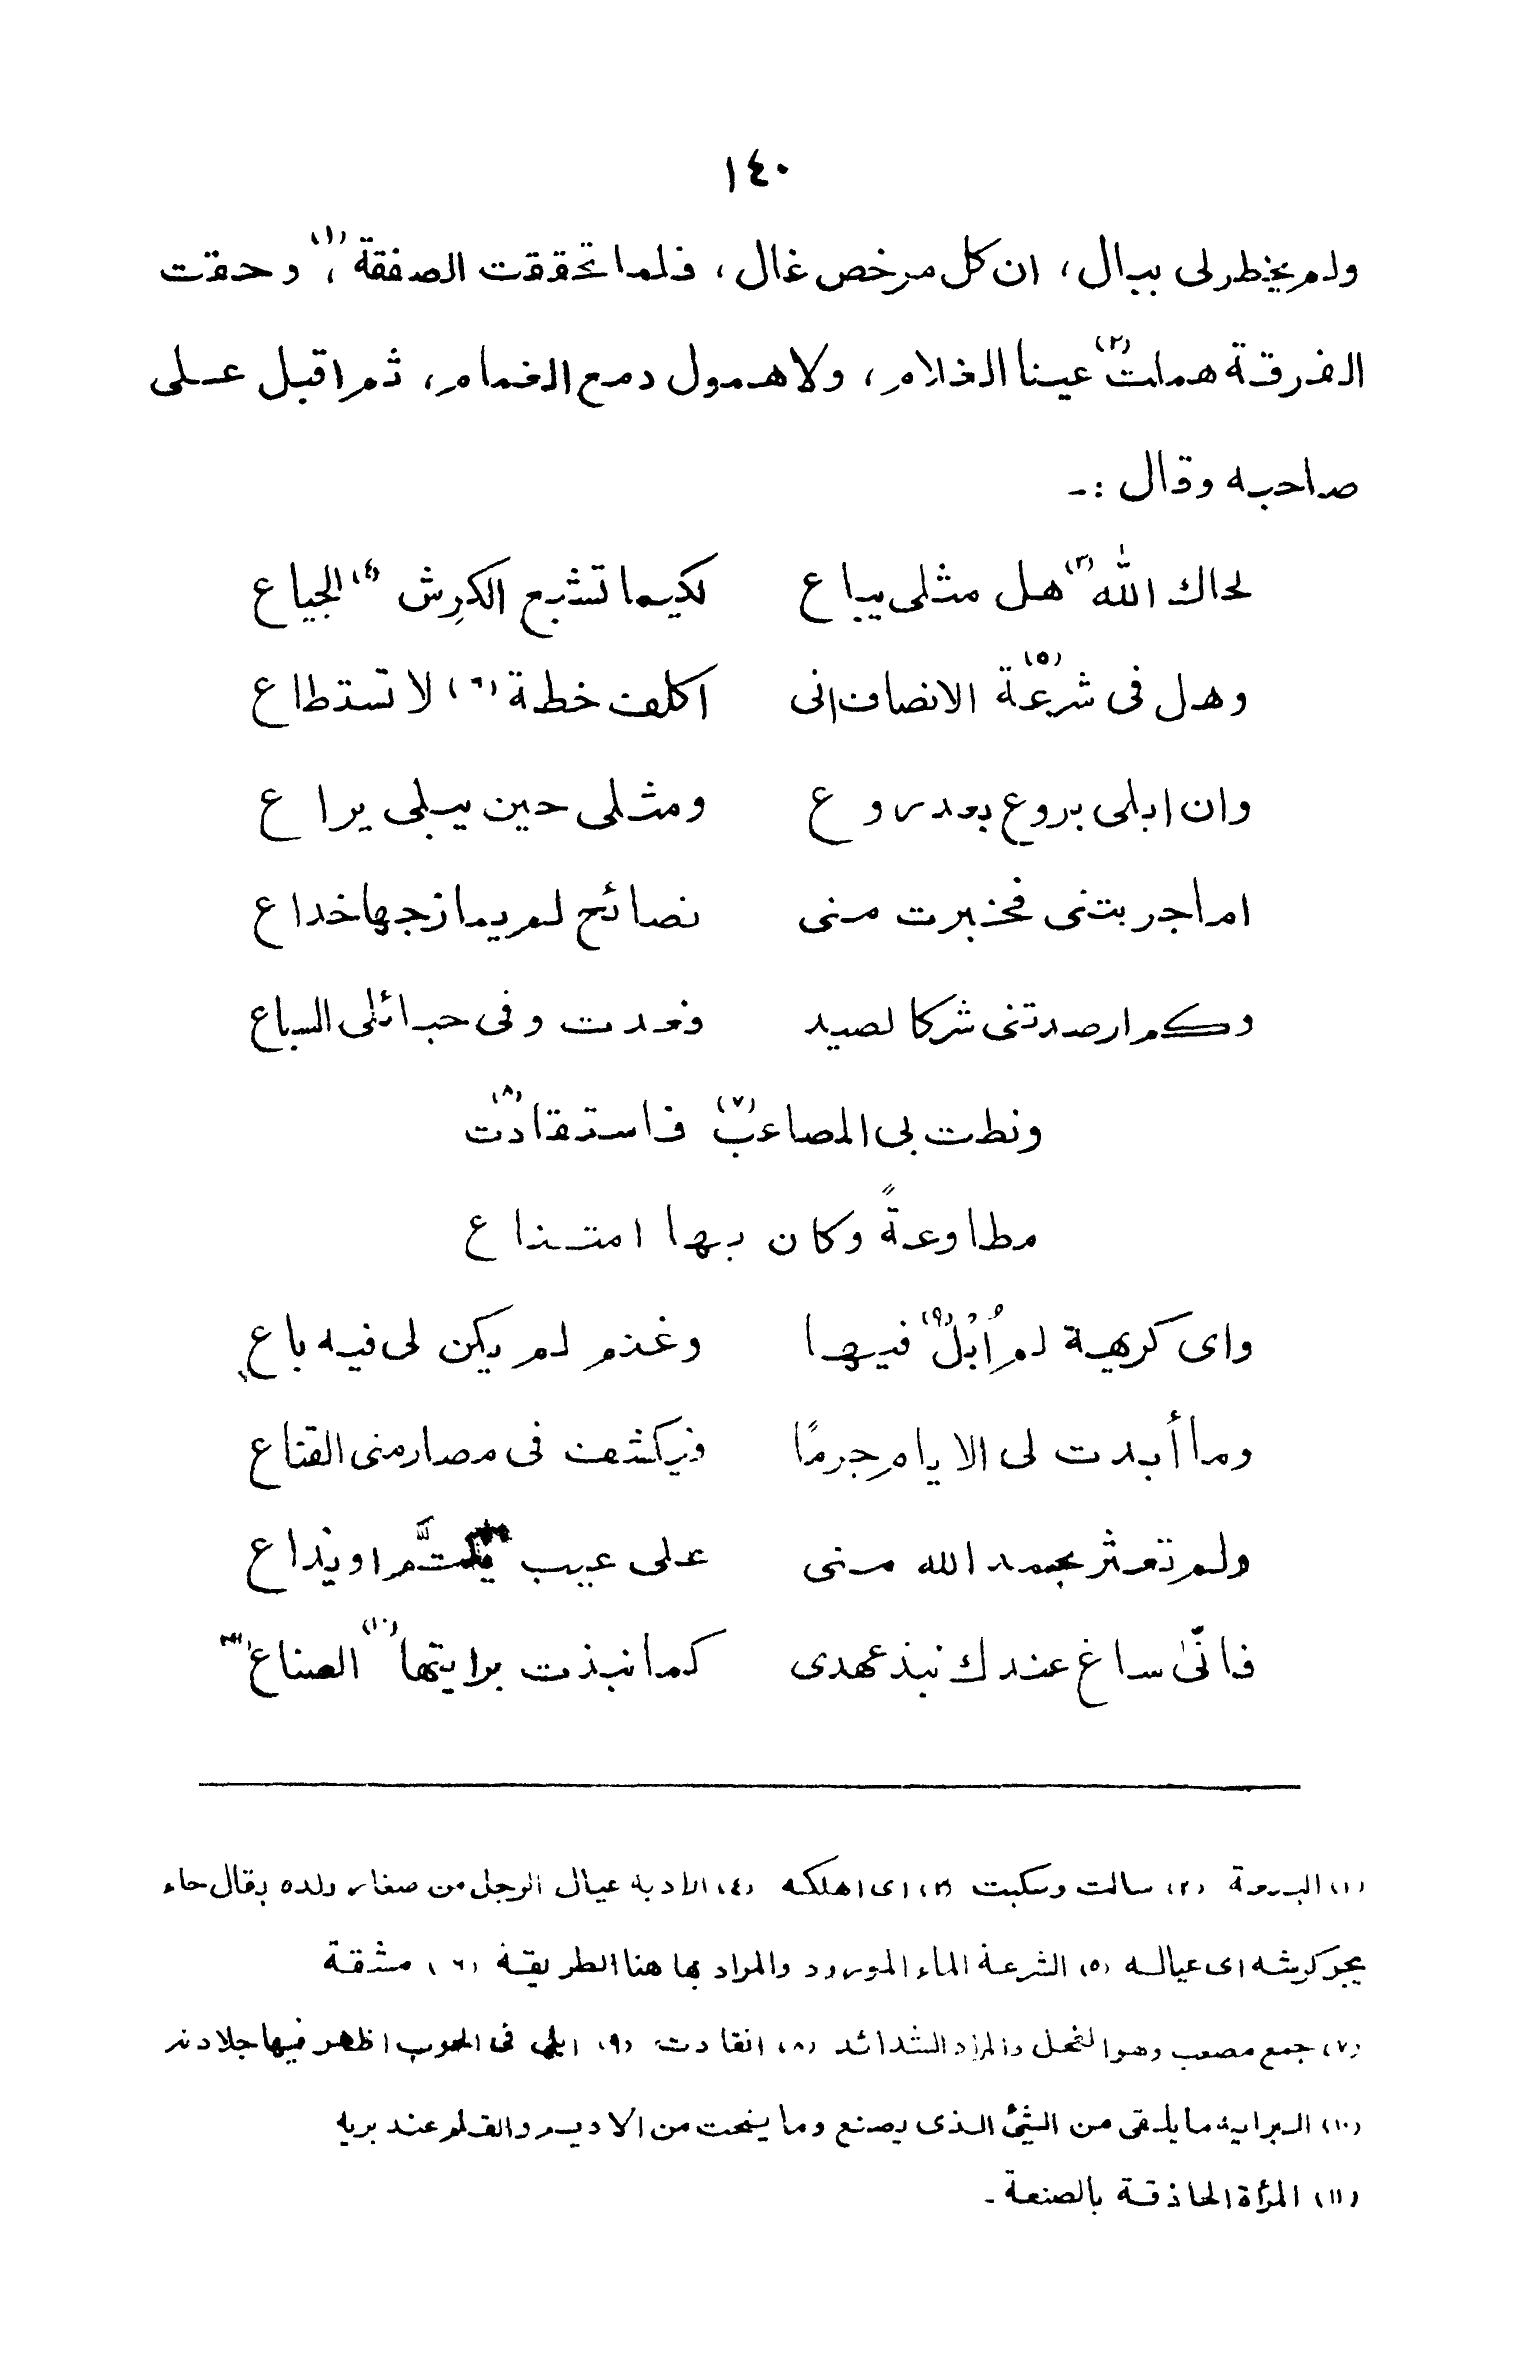 ١٤٠
ولم يخطر لى ببال، ان كل مرخص غال، فلما تحققت الصفقة (١)، وحقت
الفرقة هملت (٢) عينا الغلام، ولا همول دمع الغمام، ثم اقبل على
صاحبه وقال :-
لحاك الله (٣) هل مثلى يباع لكيما تشبع الكرِش (٤) الجياع
وهل فى شرعة (٥) الانصاف انى اكلف خطة (٦) لا تستطاع
وان ابلى بروع بعد روع ومثلى حين يبلى يراع
اما جربتنى فخبرت منى نصائح لم يمازجها خداع
وكم ارصدتنى شركا لصيد فعدت وفى حبائلى السباع
ونطت بى المصاعب (٧) فاستقادت (٨)
مطاوعةً وكان بها امتناع
واى كريهة لم اُبْل (٩) فيها وغنم لم يكن لى فيه باع
وما أبدت لى الايام جرمًا فيكشف فى مصارمنى القناع
ولم تعثر بحمد الله منى على عيب يكتَّم او يذاع
فانّىٰ ساغ عندك نبذ عهدى كما نبذت برايتها (١٠) الصناع (١١)
(١) البيعة (٢) سالت وسكبت (٣) اى اهلكه (٤) الادبه عيال الرجل من صغار ولده يقال جاء
يجر كرشه اى عياله (٥) الشرعة الماء المورود والمراد بها هنا الطريقة (٦) مشقة
(٧) جمع مصعب وهو الفحل والمراد الشدائد (٨) انقادت (٩) ابلى فى الحرب اظهر فيها جلادته
(١٠) البراية ما يلقى من الشئ الذى يصنع وما ينحت من الاديم والقلم عند بريه
(١١) المرأة الحاذقة بالصنعة -